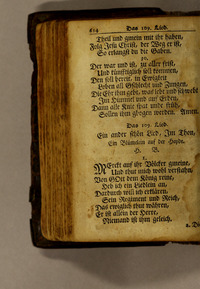 614 Das 109. Lied.
Theil und gmein mit ihr haben,
Folg Jesu Christ, der Weg er ist,
So erlangst du die Gaben.
10.
Der war und ist, zu aller frist,
Und künfftiglich soll kommen,
Den soll bereit, in Ewigkeit
Leben all Gschlecht und Zungen,
Die Ehr ihm geben, was lebt und schwebt
Im Himmel und auf Erden,
Dann alle Knie
Sollen ihm gbogen werden. Amen.
Das 110. Lied.
Ein ander schön Lied, Im Thon,
Ein Blümlein auf der Heyden.
H. B.
1.
Merckt auf ihr Völcker gmeine,
Und thut mich wohl verstahn,
Von GOtt dem König reine,
Heb ich ein Liedlein an,
Dardurch will ich erklären,
Sein Regiment und Reich,
Das ewiglich thut währen,
Er ist allein der Herre,
Niemand ist ihm geleich.